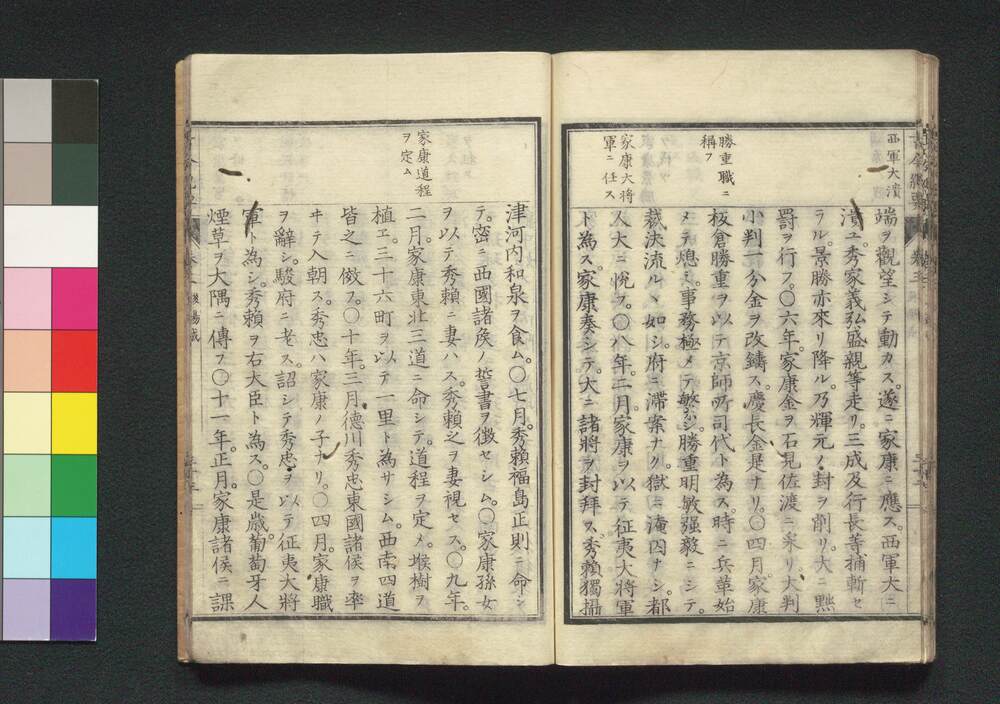 西軍大潰
端ヲ觀望シテ動カス。遂ニ家康ニ應ス。西軍大ニ
潰ユ。秀家義弘盛親等走リ。三成及行長等捕斬セ
ラル。景勝亦來リ降ル。乃輝元ノ封ヲ削リ。大ニ黜
罸ヲ行フ。〇六年。家康金ヲ石見佐渡ニ采リ。大判
小判一分金ヲ改鑄ス。慶長金是ナリ。〇四月。家康
勝重職ニ
稱フ
板倉勝重ヲ以テ京師所司代ト為ス。時ニ兵革始
メテ熄ミ。事務極メテ繁シ。勝重明敏强毅ニシテ。
裁決流ルヽ如シ。府ニ滯案ナク。獄ニ淹囚ナシ。都
家康大將
軍ニ任ス
人大ニ悅フ。〇八年。二月。家康ヲ以テ征夷大將軍
ト為ス。家康奏シテ。大ニ諸將ヲ封拜ス。秀賴獨攝
津河内和泉ヲ食ム。〇七月。秀賴福島正則ニ命シ
テ。密ニ西國諸侯ノ誓書ヲ徴セシム。〇家康孫女
ヲ以テ秀賴ニ妻ハス。秀賴之ヲ妻視セス。〇九年。
家康道程
ヲ定ム
二月。家康東北三道ニ命シテ。道程ヲ定メ。堠樹ヲ
植エ。三十六町ヲ以テ一里ト為サシム。西南四道
皆之ニ傚フ。〇十年。三月德川秀忠東國諸侯ヲ率
ヰテ入朝ス。秀忠ハ家康ノ子ナリ。〇四月。家康職
ヲ辭シ。駿府ニ老ス。詔シテ秀忠ヲ以テ征夷大將
軍ト為シ。秀賴ヲ右大臣ト為ス。〇是歲。葡萄牙人
煙草ヲ大隅ニ傳フ〇十一年。正月。家康諸侯ニ課